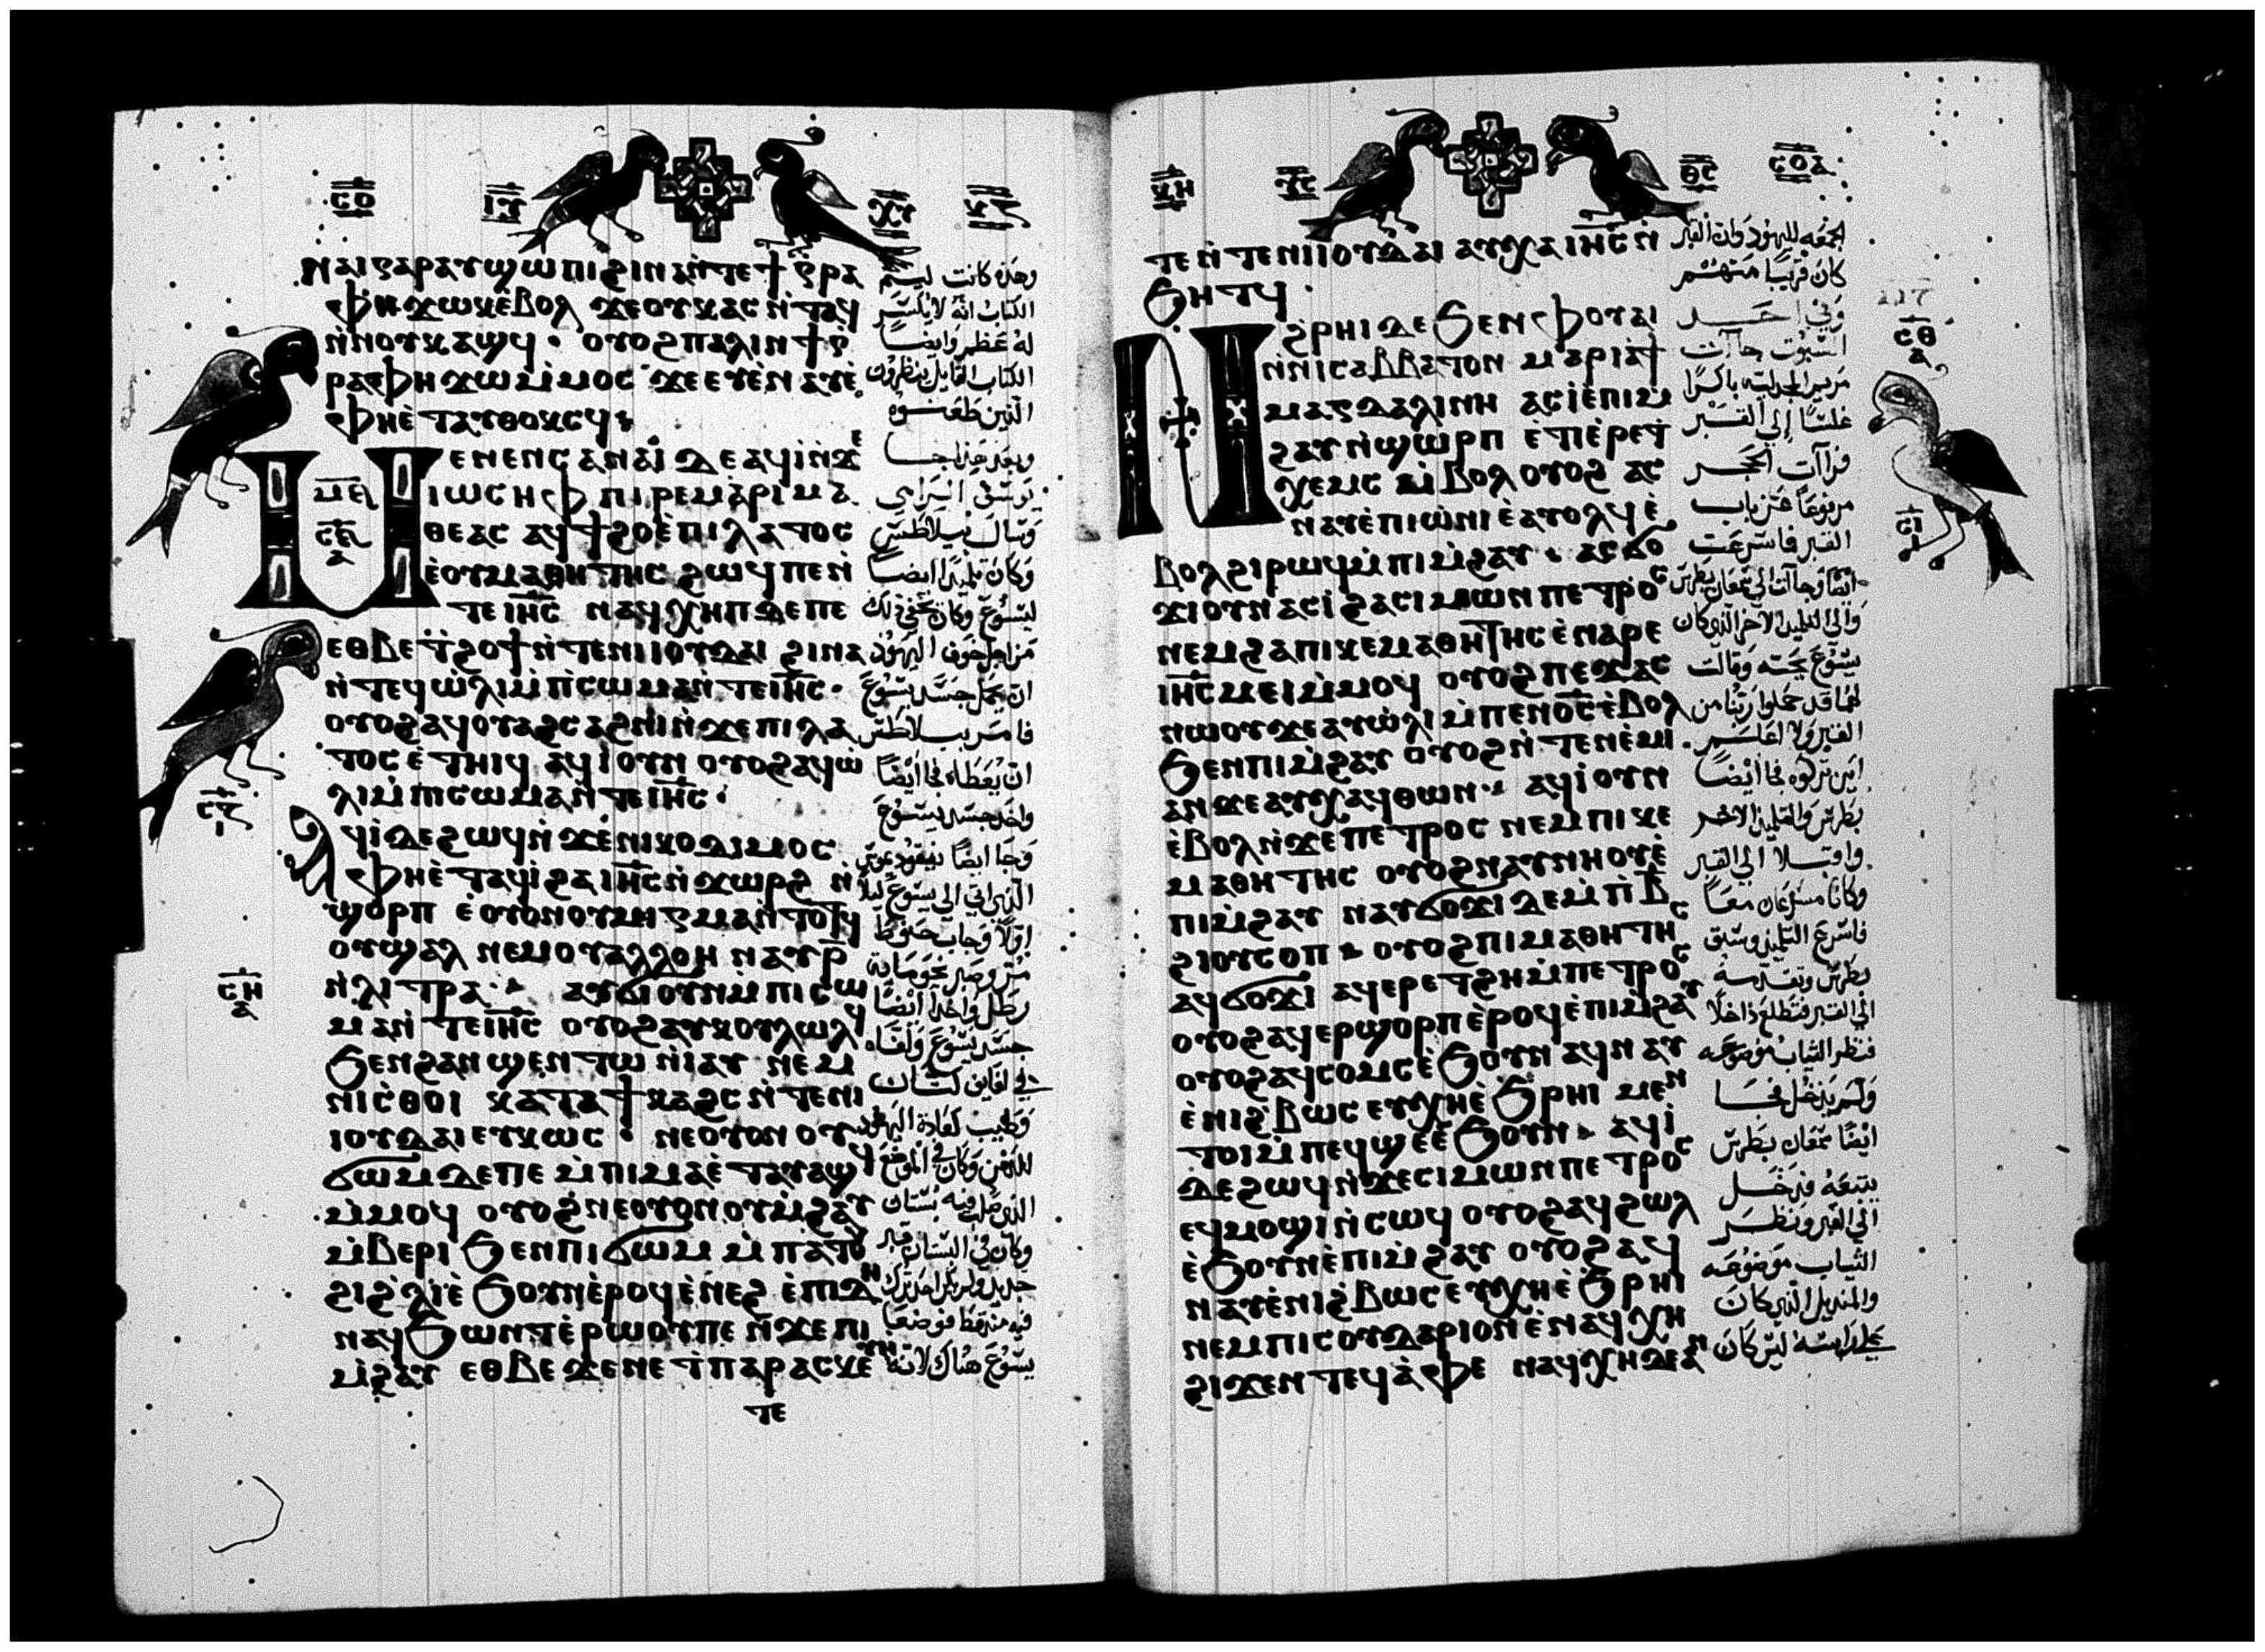 ⲥⲟ
ⲛⲁⲓ ⲅⲁⲣ ⲁⲩϣⲱⲡⲓ ϩⲓⲛⲁ ⲛⲧⲉ ϯⲅⲣⲁ
ⲫⲏ ϫⲱⲕ ⲉⲃⲟⲗ ϫⲉ ⲟⲩⲕⲁⲥ ⲛⲧⲁϥ
ⲛⲛⲟⲩⲕⲁϣϥ · ⲟⲩⲟϩ ⲡⲁⲗⲓⲛ ϯⲅ
ⲣⲁⲫⲏ ϫⲱ ⲙⲙⲟⲥ ϫⲉ ⲉⲩⲉⲛⲁⲩ ⲉ
ⲫⲏ ⲉⲧⲁⲩⲑⲟⲕⲥϥ
ⲙⲉⲛⲉⲛⲥⲁ ⲛⲁⲓ ⲇⲉ ⲁϥⲓ ⲛϫⲉ
ⲓⲱⲥⲏⲫ ⲡⲓⲣⲉⲙⲁⲣⲓⲙⲁ
ⲑⲉⲁⲥ ⲁϥϯϩⲟ ⲉⲡⲓⲗⲁⲧⲟⲥ
ⲉⲟⲩⲙⲁⲑⲏⲧⲏⲥ ϩⲱϥ ⲡⲉ ⲛ
ⲧⲉ ⲓⲏⲥ ⲛⲁϥⲭⲏⲡ ⲇⲉ ⲡⲉ
ⲉⲑⲃⲉ ⲧϩⲟϯ ⲛⲧⲉ ⲛⲓⲓⲟⲩⲇⲁⲓ ϩⲓⲛⲁ
ⲛⲧⲉϥⲱⲗⲓ ⲙⲡⲥⲱⲙⲁ ⲛⲧⲉ ⲓⲏⲥ ·
ⲟⲩⲟϩ ⲁϥⲟⲩⲁϩⲥⲁϩⲛⲓ ⲛϫⲉ ⲡⲓⲗⲁ
ⲧⲟⲥ ⲉⲧⲏⲓϥ ⲁϥⲓ ⲟⲩⲛ ⲟⲩⲟϩ ⲁϥⲱ
ⲗⲓ ⲙⲡⲥⲱⲙⲁ ⲛⲧⲉ ⲓⲏⲥ ·
ⲁϥⲓ ⲇⲉ ϩⲱϥ ⲛϫⲉ ⲛⲓⲕⲟⲇⲓⲙⲟⲥ
ⲫⲏ ⲉⲧⲁϥⲓ ϩⲁ ⲓⲏⲥ ⲛϫⲱⲣϩ ⲛ
ϣⲟⲣⲡ ⲉⲟⲩⲟⲛ ⲟⲩⲙⲓⲅⲙⲁ ⲛⲧⲟⲧϥ
ⲟⲩϣⲁⲗ ⲛⲉⲙ ⲟⲩⲁⲗⲗⲟⲏ ⲛⲁⲩ ⲣ
ⲛⲗⲓⲧⲣⲁ · ⲁⲩϭⲓ ⲟⲩⲛ ⲙⲡⲓⲥⲱ
ⲙⲁ ⲛⲧⲉ ⲓⲏⲥ ⲟⲩⲟϩ ⲁⲩⲕⲟⲩⲗⲱⲗϥ
ϧⲉⲛ ϩⲁⲛϣⲉⲛⲧⲱ ⲛⲓⲁⲩ ⲛⲉⲙ
ⲛⲓⲥⲑⲟⲓ ⲕⲁⲧⲁ ϯⲕⲁϩⲥ ⲛⲧⲉ ⲛⲓ
ⲓⲟⲩⲇⲁⲓ ⲉⲩⲕⲱⲥ · ⲛⲉ ⲟⲩⲟⲛ ⲟⲩ
ϭⲱⲙ ⲇⲉ ⲡⲉ ⲙⲡⲓⲙⲁ ⲉⲧⲁⲩⲁϣϥ
ⲙⲙⲟϥ ⲟⲩⲟϩ ⲛⲉ ⲟⲩⲟⲛ ⲟⲩⲙϩⲁⲩ
ⲙⲃⲉⲣⲓ ϧⲉⲛ ⲡⲓϭⲱⲙ ⲙⲡⲁⲧⲟⲩ
ϩⲓ ϩⲗⲓ ⲉϧⲟⲩⲛ ⲉⲣⲟϥ ⲉⲛⲉϩ ⲉⲡⲓⲇⲏ
ⲛⲁϥϧⲱⲛⲧ ⲉⲣⲱⲟⲩ ⲡⲉ ⲛϫⲉ ⲡⲓ
ⲙϩⲁⲩ ⲉⲑⲃⲉ ϫⲉ ⲛⲉ ϯⲡⲁⲣⲁⲥⲕⲉⲩⲏ
ⲧⲉ
وهذه كانت ليتم
الكتاب انه لا يكسر
له عظم وايضا
الكتاب القايل ينظرون
الذين طعنوه
وبعد هذا جا
يوسف الرامي
وسال بيلاطس
وكان تلميذا ايضا
ليسوع وكان مخفي ذلك
من اجل خوف اليهود
ان يحمل جسد يسوع
فامر بيلاطس
ان يعطاه فجا ايضا
واخذ جسد يسوع
وجا ايضا نيقوديموس
الذي اتي الى يسوع ليلا
اولا وجاب حنوط
مر وصبر نحو ماية
رطل واخذا ايضا
جسد يسوع ولفاه
في لفايف كتان
وطيب كعادة اليهود
للدفن وكان في الموضع
الذي صلب فيه بستان
وكان في البستان قبر
جديد ولم يكن احد ترك
فيه منه قط فوضعا
يسوع هناك لانه
ⲥⲟⲁ
ⲧⲉ ⲛⲧⲉ ⲛⲓⲓⲟⲩⲇⲁⲓ ⲁⲩⲭⲁ ⲓⲏⲥ ⲛ
ϧⲏⲧϥ ·
ⲛϩⲣⲏⲓ ⲇⲉ ϧⲉⲛ ⲫⲟⲩⲁⲓ
ⲛⲛⲓⲥⲁⲃⲃⲁⲧⲟⲛ ⲙⲁⲣⲓⲁ ϯ
ⲙⲁⲅⲇⲁⲗⲓⲛⲏ ⲁⲥⲓ ⲉⲡⲓⲙ
ϩⲁⲩ ⲛϣⲱⲣⲡ ⲉⲧⲓ ⲉⲣⲉ ⲧ
ⲭⲉⲙⲥ ⲙⲃⲟⲗ ⲟⲩⲟϩ ⲁⲥ
ⲛⲁⲩ ⲉⲡⲓⲱⲛⲓ ⲉⲁⲩⲟⲗϥ ⲉ
ⲃⲟⲗ ϩⲓⲣⲱϥ ⲙⲡⲓⲙϩⲁⲩ · ⲁⲥϭⲟ
ϫⲓ ⲟⲩⲛ ⲁⲥⲓ ϩⲁ ⲥⲓⲙⲱⲛ ⲡⲉⲧⲣⲟⲥ
ⲛⲉⲙ ϩⲁ ⲡⲓⲕⲉⲙⲁⲑⲏⲧⲏⲥ ⲉⲛⲁⲣⲉ
ⲓⲏⲥ ⲙⲉⲓ ⲙⲙⲟϥ ⲟⲩⲟϩ ⲡⲉϫⲁⲥ
ⲛⲱⲟⲩ ϫⲉ ⲁⲩⲱⲗⲓ ⲙⲡⲉⲛⲟⲥ ⲉⲃⲟⲗ
ϧⲉⲛ ⲡⲓⲙϩⲁⲩ ⲟⲩⲟϩ ⲛⲧⲉⲛⲉⲙⲓ
ⲁⲛ ϫⲉ ⲁⲩⲭⲁϥ ⲑⲱⲛ · ⲁϥⲓ ⲟⲩⲛ
ⲉⲃⲟⲗ ⲛϫⲉ ⲡⲉⲧⲣⲟⲥ ⲛⲉⲙ ⲡⲓⲕⲉ
ⲙⲁⲑⲏⲧⲏⲥ ⲟⲩⲟϩ ⲛⲁⲩⲛⲏⲟⲩ ⲉ
ⲡⲓⲙϩⲁⲩ ⲛⲁⲩϭⲟϫⲓ ⲇⲉ ⲙⲡⲃ
ϩⲓⲟⲩⲥⲟⲡ ⲟⲩⲟϩ ⲡⲓⲙⲁⲑⲏⲧⲏⲥ
ⲁϥϭⲟϫⲓ ⲁϥⲉⲣⲉⲧϩⲏ ⲙⲡⲉⲧⲣⲟⲥ
ⲟⲩⲟϩ ⲁϥⲉⲣϣⲟⲣⲡ ⲉⲣⲟϥ ⲉⲡⲓⲙϩⲁⲩ
ⲟⲩⲟϩ ⲁϥⲥⲟⲙⲥ ⲉϧⲟⲩⲛ ⲁϥⲛⲁⲩ
ⲉⲛⲓϩⲃⲱⲥ ⲉⲩⲭⲏ ⲉϧⲣⲏⲓ ⲙⲉⲛ
ⲧⲟⲓ ⲙⲡⲉϥϣⲉ ⲉϧⲟⲩⲛ · ⲁϥⲓ
ⲇⲉ ϩⲱϥ ⲛϫⲉ ⲥⲓⲙⲱⲛ ⲡⲉⲧⲣⲟⲥ
ⲉϥⲙⲟϣⲓ ⲛⲥⲱϥ ⲟⲩⲟϩ ⲁϥϩⲱⲗ
ⲉϧⲟⲩⲛ ⲉⲡⲓⲙϩⲁⲩ ⲟⲩⲟϩ ⲁϥ
ⲛⲁⲩ ⲉⲛⲓϩⲃⲱⲥ ⲉⲩⲭⲏ ⲉϧⲣⲏⲓ
ⲛⲉⲙ ⲡⲓⲥⲟⲩⲇⲁⲣⲓⲟⲛ ⲉⲛⲁϥⲭⲏ
ϩⲓϫⲉⲛ ⲧⲉϥⲁⲫⲉ ⲛⲁϥⲭⲏ ⲇⲉ ⲁⲛ
الجمعه لليهود وان القبر
كان قريبا منهم
وفي احد
السبوت جاات
مريم المجدلية باكرا
غلسا الي القبر
فراات الحجر
مرفوعا عن باب
القبر فاسرعت
ايضا وجاات الي سمعان بطرس
والي التلميذ الاخر الذي كان
يسوع يحبه وقالت
لهما قد حملوا ربنا من
القبر ولا اعلم
اين تركوه فجا ايضا
بطرس والتلميذ الاخر
واقبلا الي القبر
وكانا مسرعان معا
فاسرع التلميذ وسبق
بطرس وتقدمه
الي القبر فتطلع داخلا
فنظر الثياب موضوعه
ولم يدخل فجا
ايضا سمعان بطرس
يتبعه فدخل
الي القبر ونظر
الثياب موضوعه
والمنديل الذي كان
علي راسه ليس كان